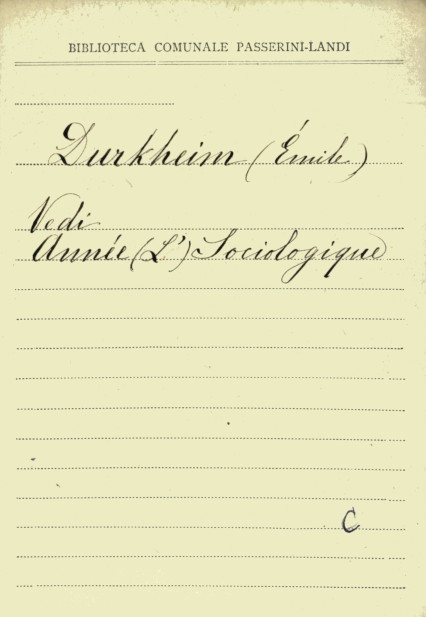 BIBLIOTECA COMUNALE PASSERINI-LANDI
Durkheim (Émile)
Vedi
Année (L') Sociologique
C